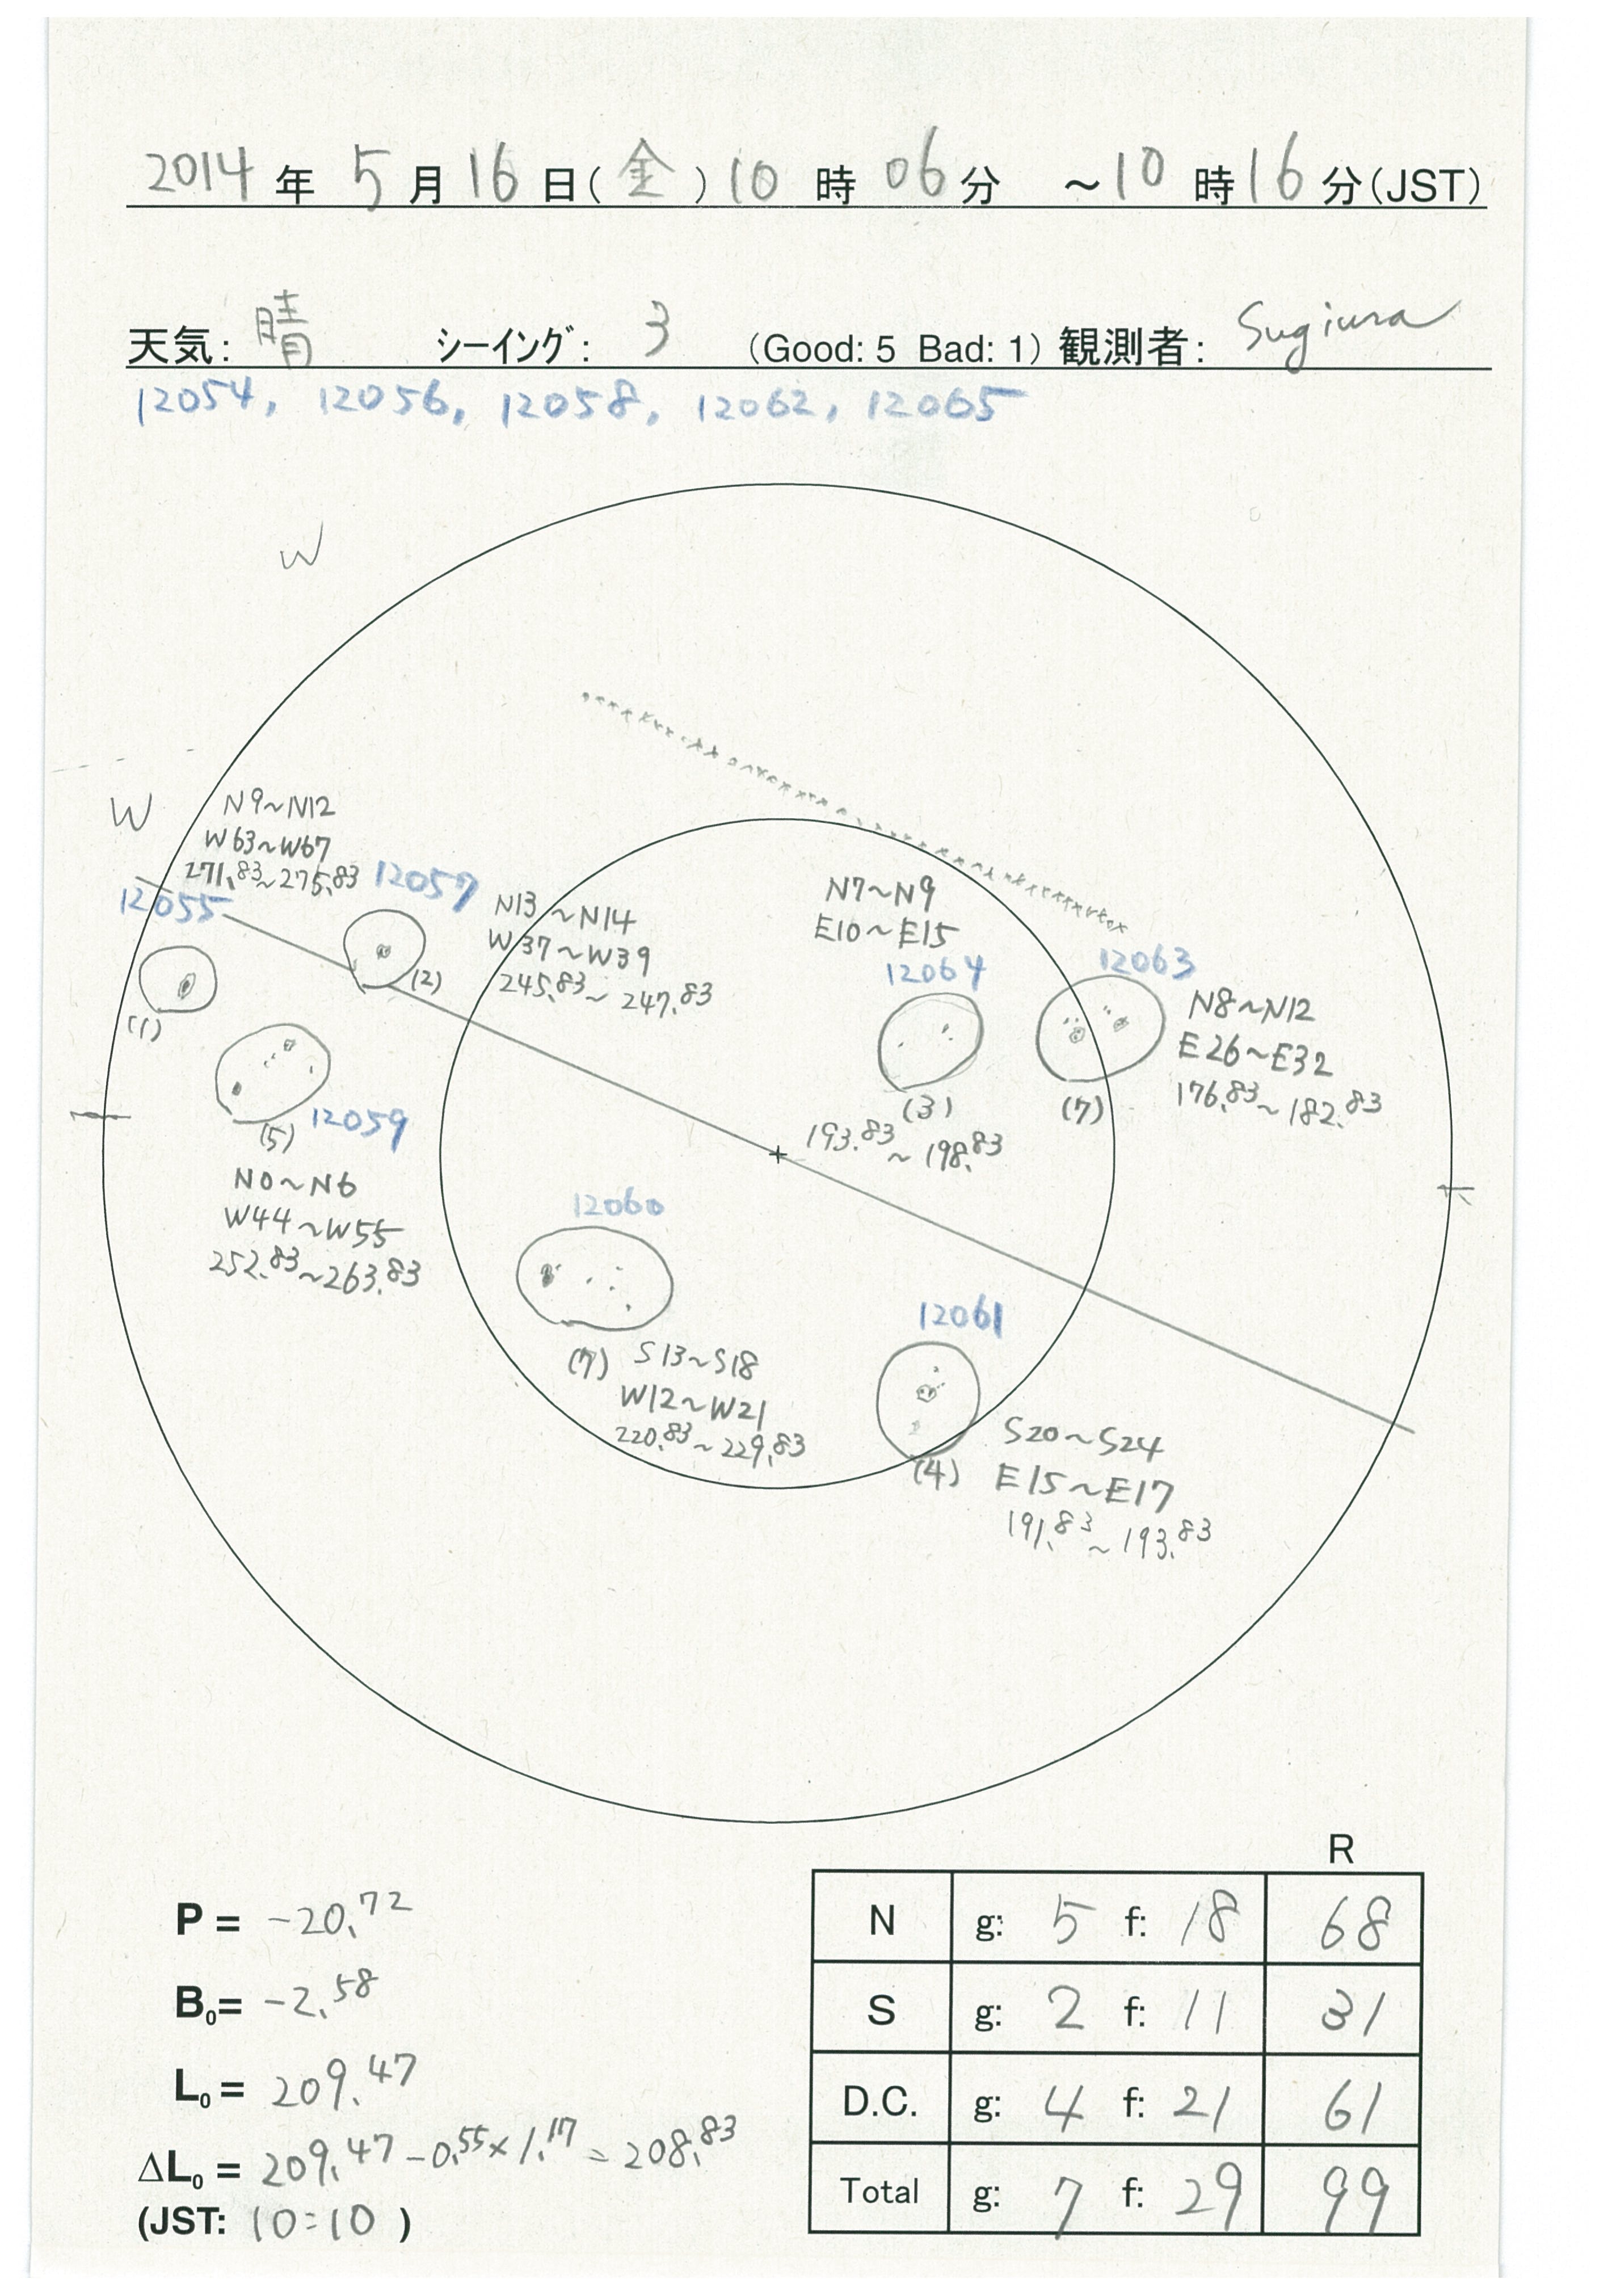 2014年 5月16日(金)10時06分 ~10時16分(JST)
天気: 晴 シーイング: 3 (Good: 5 Bad: 1) 観測者: Sugiura
12054, 12056, 12058, 12062, 12065
W
W
N9~N12
W63~W67
271.83~275.83
12055
12057
(1)
(2)
N13~N14
W37~W39
245.83~247.83
N7~N9
E10~E15
12064
(3)
193.83~198.83
12063
N8~N12
E26~E32
176.83~182.83
(7)
12059
(5)
N0~N6
W44~W55
252.83~263.83
12060
(7)
S13~S18
W12~W21
220.83~229.83
12061
(4)
S20~S24
E15~E17
191.83~193.83
P = -20.72
B0= -2.58
L0 = 209.47
ΔL0 = 209.47-0.55×1.17=208.83
(JST: 10:10 )
R
N g: 5 f: 18 68
S g: 2 f: 11 31
D.C. g: 4 f: 21 61
Total g: 7 f: 29 99